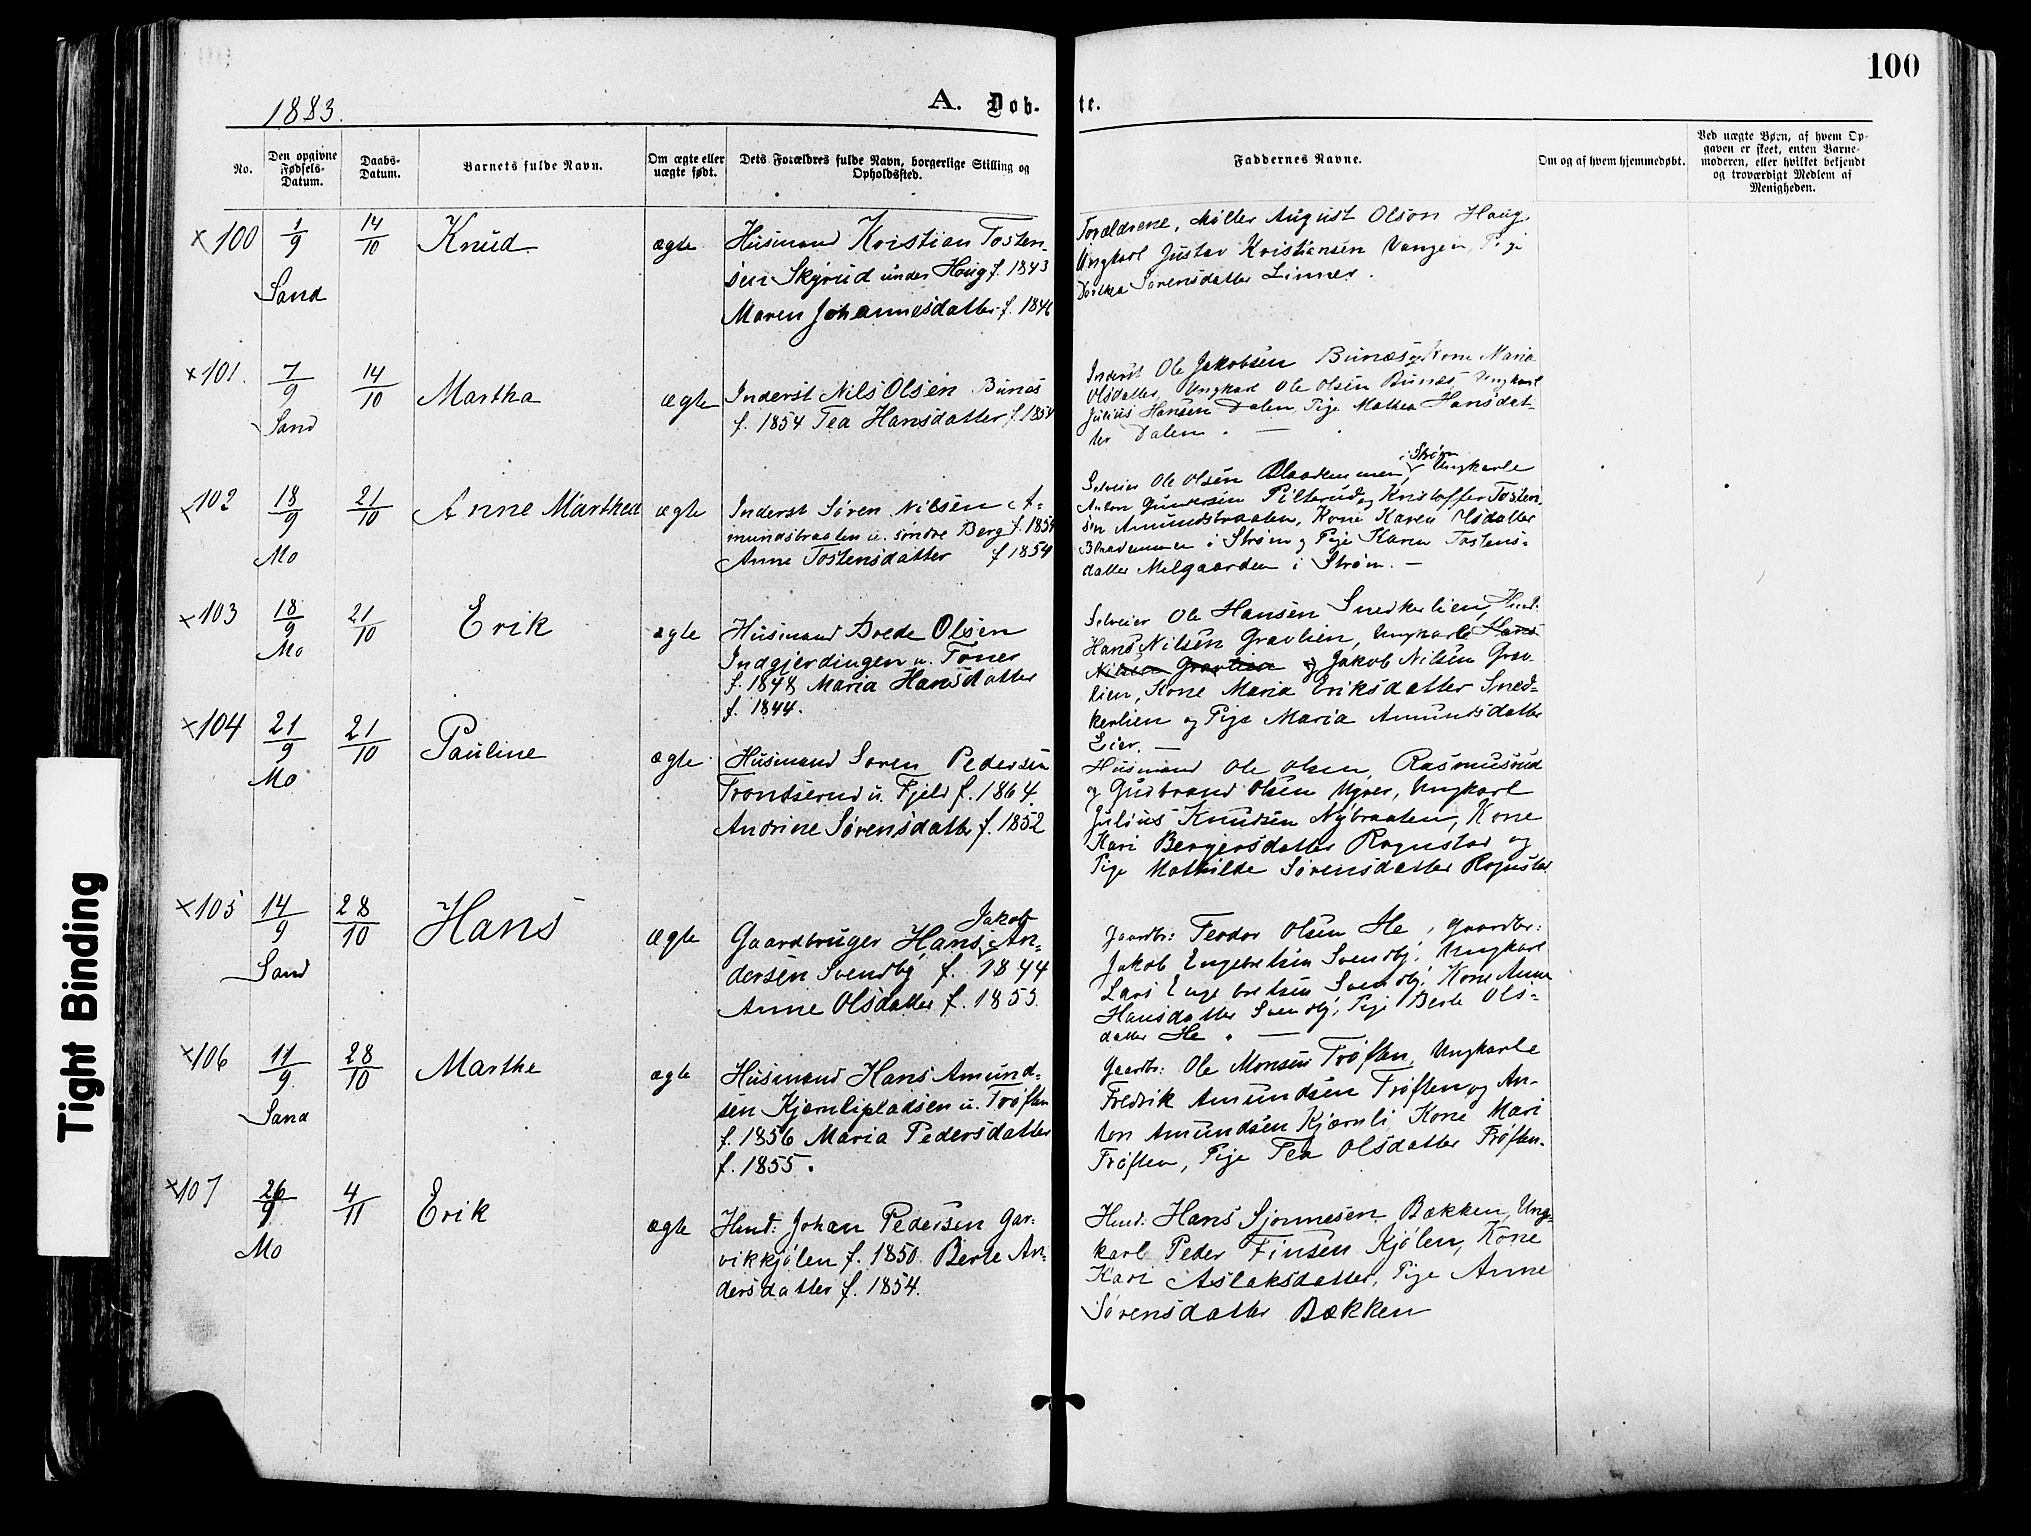 100
1883.
A. Døb-
te.
No.
Den opgivne Fødsels-Datum.
Daabs-Datum.
Barnets fulde Navn.
Om ægte eller uægte født.
Dets Forældres fulde Navn, borgerlige Stilling og Opholdssted.
Faddernes Navne.
Om og af hvem hjemmedøbt.
Ved uægte Børn, af hvem Op-
gaven er skeet, enten Barne-
moderen, eller hvilket bekjendt
og troværdigt Medlem af
Menigheden.
×100 1/9 14/10 Knud ægte
Sand
Husmand Kristian Tosten-
sen Skyrud under Houg f. 1843
Maren Johannesdatter f. 1846
Forældrene, Møller August Olson Haug,
Ungkarl Gustav Kristiansen Vangen, Pige
Dorthea Sørensdatter Linner.
×101. 7/9 14/10 Martha ægte
Sand
Inderst Nils Olsen Bunæs
f. 1854 Tea Hansdatter f. 1854
Inderst Ole Jakobsen Bunæs og Kone Maria
Olsdatter, Ungkarl Ole Olsen Bunæs, Ungkarl
Julius Hansen Dalen, Pige Mathea Hansdat-
ter Dalen. —
×102 18/9 21/10 Anne Marthea ægte
Mo
Inderst Søren Nilsen A-
mundsbraaten u. søndre Berg f. 1854
Anne Tostensdatter f 1854
Selveier Ole Olsen Blaademmen i Strøm, Ungkarle
Anton Gundersen Pilterud og Kristoffer Tosten-
sen Amundsbraaten, Kone Karen Olsdatter
Blaademmen i Strøm og Pige Karen Tostens-
datter Melgaarden i Strøm. —
×103 18/9 21/10 Erik ægte
Mo
Husmand Brede Olsen
Indgjerdingen u. Toner
f. 1848 Maria Hansdatter
f. 1844.
Selveier Ole Hansen Snedkerlien, Husd:
Hans Nilsen Gravlien, Ungkarle Hans
Nilsen Gravlien og Jakob Nilsen Grav-
lien, Kone Maria Eriksdatter Sned-
kerlien og Pige Maria Amundsdatter
Eier. —
×104 21/9 21/10 Pauline ægte
Mo
Husmand Soren Pedersen
Trondserud u. Fjeld f. 1864.
Andrine Sørensdatter f. 1852
Husmand Ole Olsen Rasmusrud
og Gudbrand Olsen Myrer, Ungkarl
Julius Knudsen Nybraaten, Kone
Kari Bergersdatter Rogustad og
Pige Mathilde Sørensdatter Rogustad.
×105 14/9 28/10 Hans ægte
Sand
Gaardbruger Hans Jakob An-
dersen Svendby f. 1844
Anne Olsdatter f. 1855.
Gaardbr: Teodor Olsen He, Gaardbr:
Jakob Engebretsen Svendby, Ungkarl
Lars Engebretsen Svendby, Kone Anne
Hansdatter Svendby, Pige Berte Ols-
datter He. —
×106 11/9 28/10 Marthe ægte
Sand
Husmand Hans Amund-
sen Kjernlipladsen u. Trøften
f. 1856 Maria Pedersdatter
f. 1855.
Gaardbr: Ole Monsen Trøften, Ungkarle
Fredrik Amundsen Trøften og An-
ton Amundsen Kjærnli, Kone Mari
Trøften, Pige Tea Olsdatter Trøften.
×107 26/9 4/11 Erik ægte
Mo
Husd: Johan Pedersen Gar-
vikkjølen f. 1850. Berte An-
dersdatter f. 1854.
Husd: Hans Sjønnesen Bækken, Ung-
karl Peder Finsen Kjølen, Kone
Kari Aslaksdatter, Pige Anne
Sørensdatter Bækken
Tight Binding